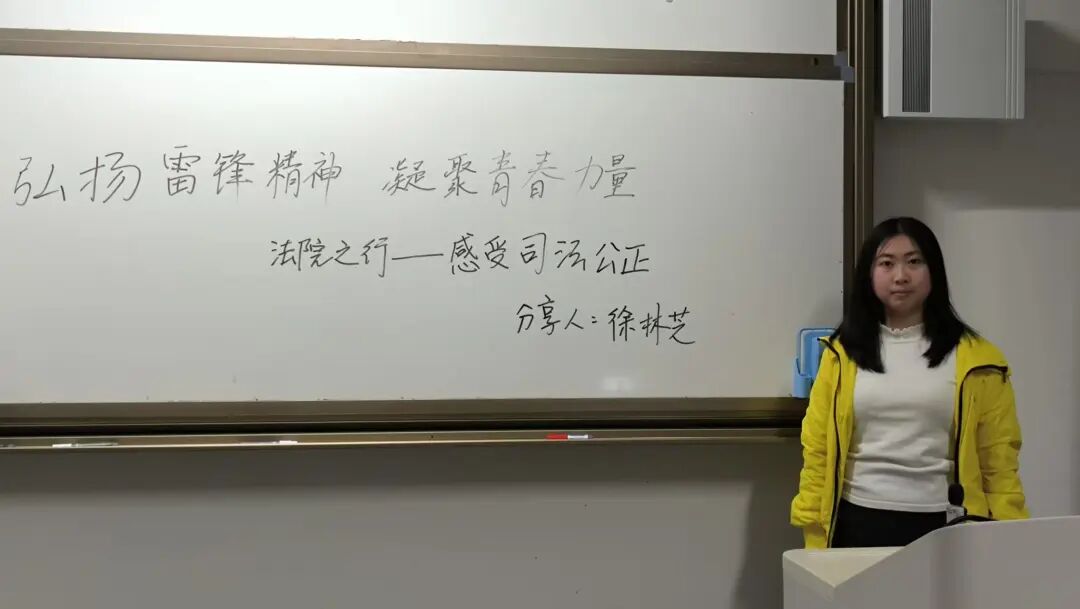 弘扬雷锋精神 凝聚青春力量
法院之行——感受司法公正
分享人：徐林芝